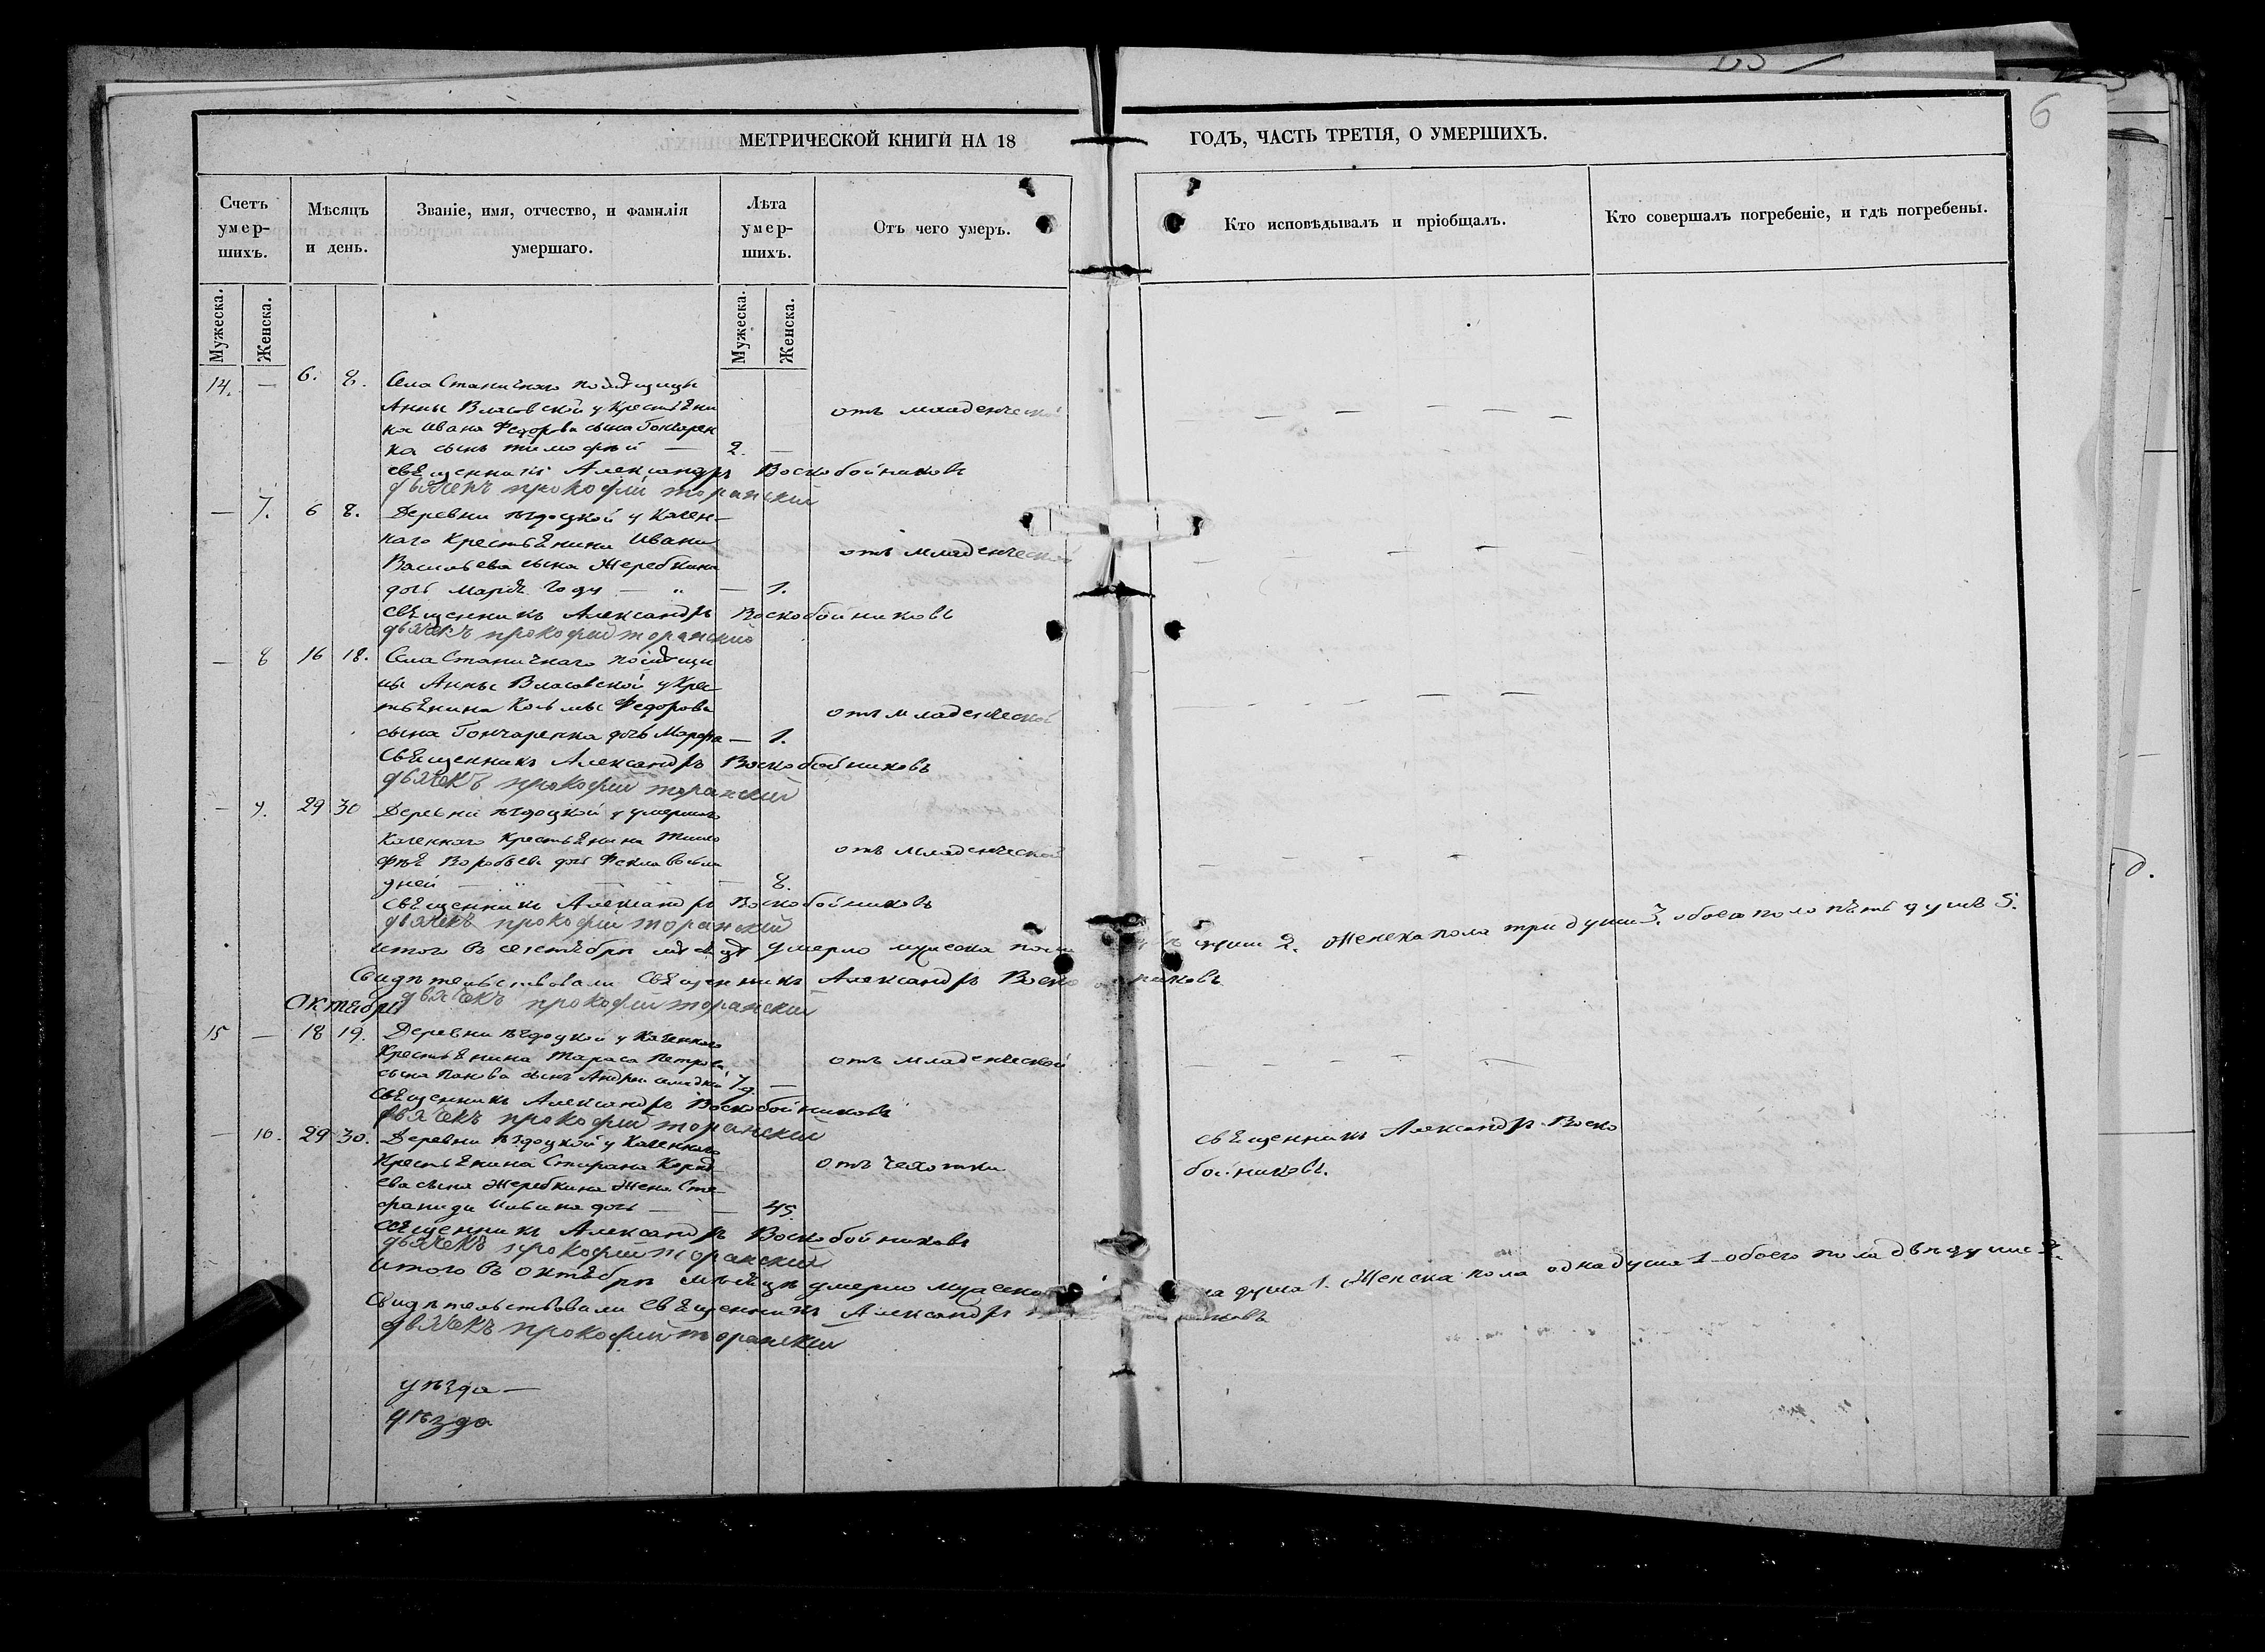 6
МЕТРИЧЕСКОЙ КНИГИ НА 18 ГОДЪ, ЧАСТЬ ТРЕТІЯ, О УМЕРШИХЪ.
Счетъ умер-шихъ.
Мѣсяцъ и день.
Званіе, имя, отчество, и фамилія умершаго.
Лѣта умер-шихъ.
Отъ чего умеръ.
Кто исповѣдывалъ и пріобщалъ.
Кто совершалъ погребеніе, и гдѣ погребены.
Мужеска. Женска. Мужеска. Женска.
14. — 6. 8. Села Станичнаго помѣщицы
Анны Власовской у крестьяни
на Ивана Федорова сына Гончарен
ка сынъ тимофѣй — 2. —
отъ младенческой
священникъ Александръ Воскобойниковъ
дьячекъ прокофій торанскій
— 7. 6 8. Деревни у казен-
наго крестьянина Ивана
Васильева сына Жеребкина
дочь Марія году — " — 1.
отъ младенческой
священникъ Александръ Воскобойниковъ
дьячекъ прокофій торанскій
— 8 16 18. Села Станичнаго помѣщи
цы Анны Власовской у крес
тьянина Козьмы Федорова
сына Гончаренка дочь Марфа — 1.
отъ младенческой
Священникъ Александръ Воскобойниковъ
дьячекъ прокофій торанскій
— 9. 29 30 Деревни у умершаго
казеннаго крестьянина Тимо
фея Воробьева дочь Фекла восьми
дней — " — " — 8.
отъ младенческой
Священникъ Александръ Воскобойниковъ
дьячекъ прокофій торанскій
итого в сентябрѣ мѣсяцѣ умерло мужеска пола души 2. Женска пола три души 3. обоего пола пять душъ 5.
Свидѣтельствовали Священникъ Александръ
дьячекъ прокофій торанскій
Октябрь
15 — 18 19. Деревни у казеннаго
крестьянина Тараса Петрова
сына Панова сынъ Андрей 7 —
отъ младенческой
Священникъ Александръ Воскобойниковъ
дьячекъ прокофій торанскій
— 10. 29 30. Деревни у казеннаго
крестьянина
ева сына Жеребкина жена Сте
фанида Ильина дочь — — 45.
отъ чехотки
священникъ Александръ Воско
бойниковъ.
священникъ Александръ Воскобойниковъ
дьячекъ прокофій торанскій
итого в октябрѣ мѣсяцѣ умерло мужеска душа 1. Женска пола одна душа 1 обоего пола двѣ души 2.
Свидѣтельствовали священникъ Александръ
дьячекъ прокофій торанскій
уѣзда —
уѣзда